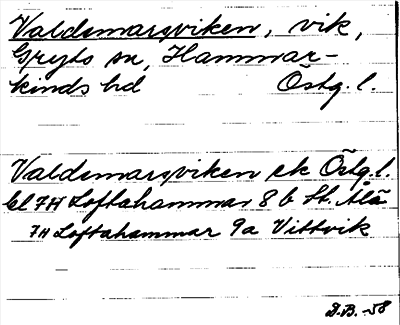 Valdemarsviken, vik,
Gryts sn, Hammar-
kinds hd Östg. l.
Valdemarsviken ek Östg. l.
bl 7H Loftahammar 8 b St. Ålö
7H Loftahammar 9a Vittvik
D.B. -58